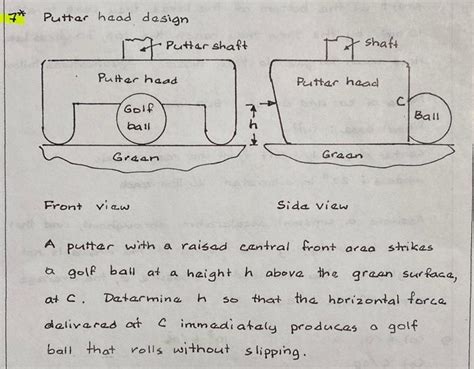 7* Putter head design
Putter shaft
shaft
Putter head
Putter head
Golf
ball
C
Ball
h
Green
Green
Front view
Side view
A putter with a raised central front area strikes
a golf ball at a height h above the green surface,
at C. Determine h so that the horizontal force
delivered at C immediately produces a golf
ball that rolls without slipping.